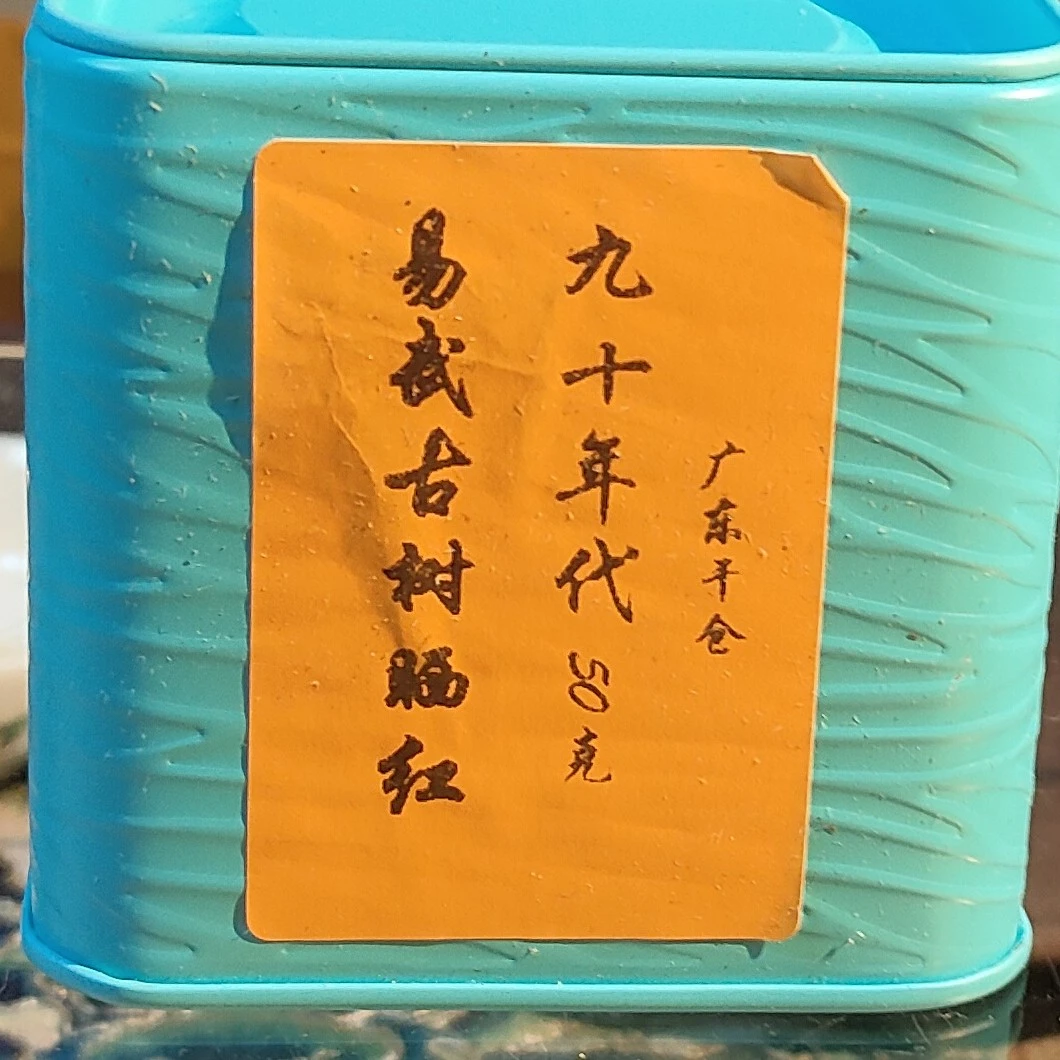 广东干仓
九十年代50克
易武古树晒红